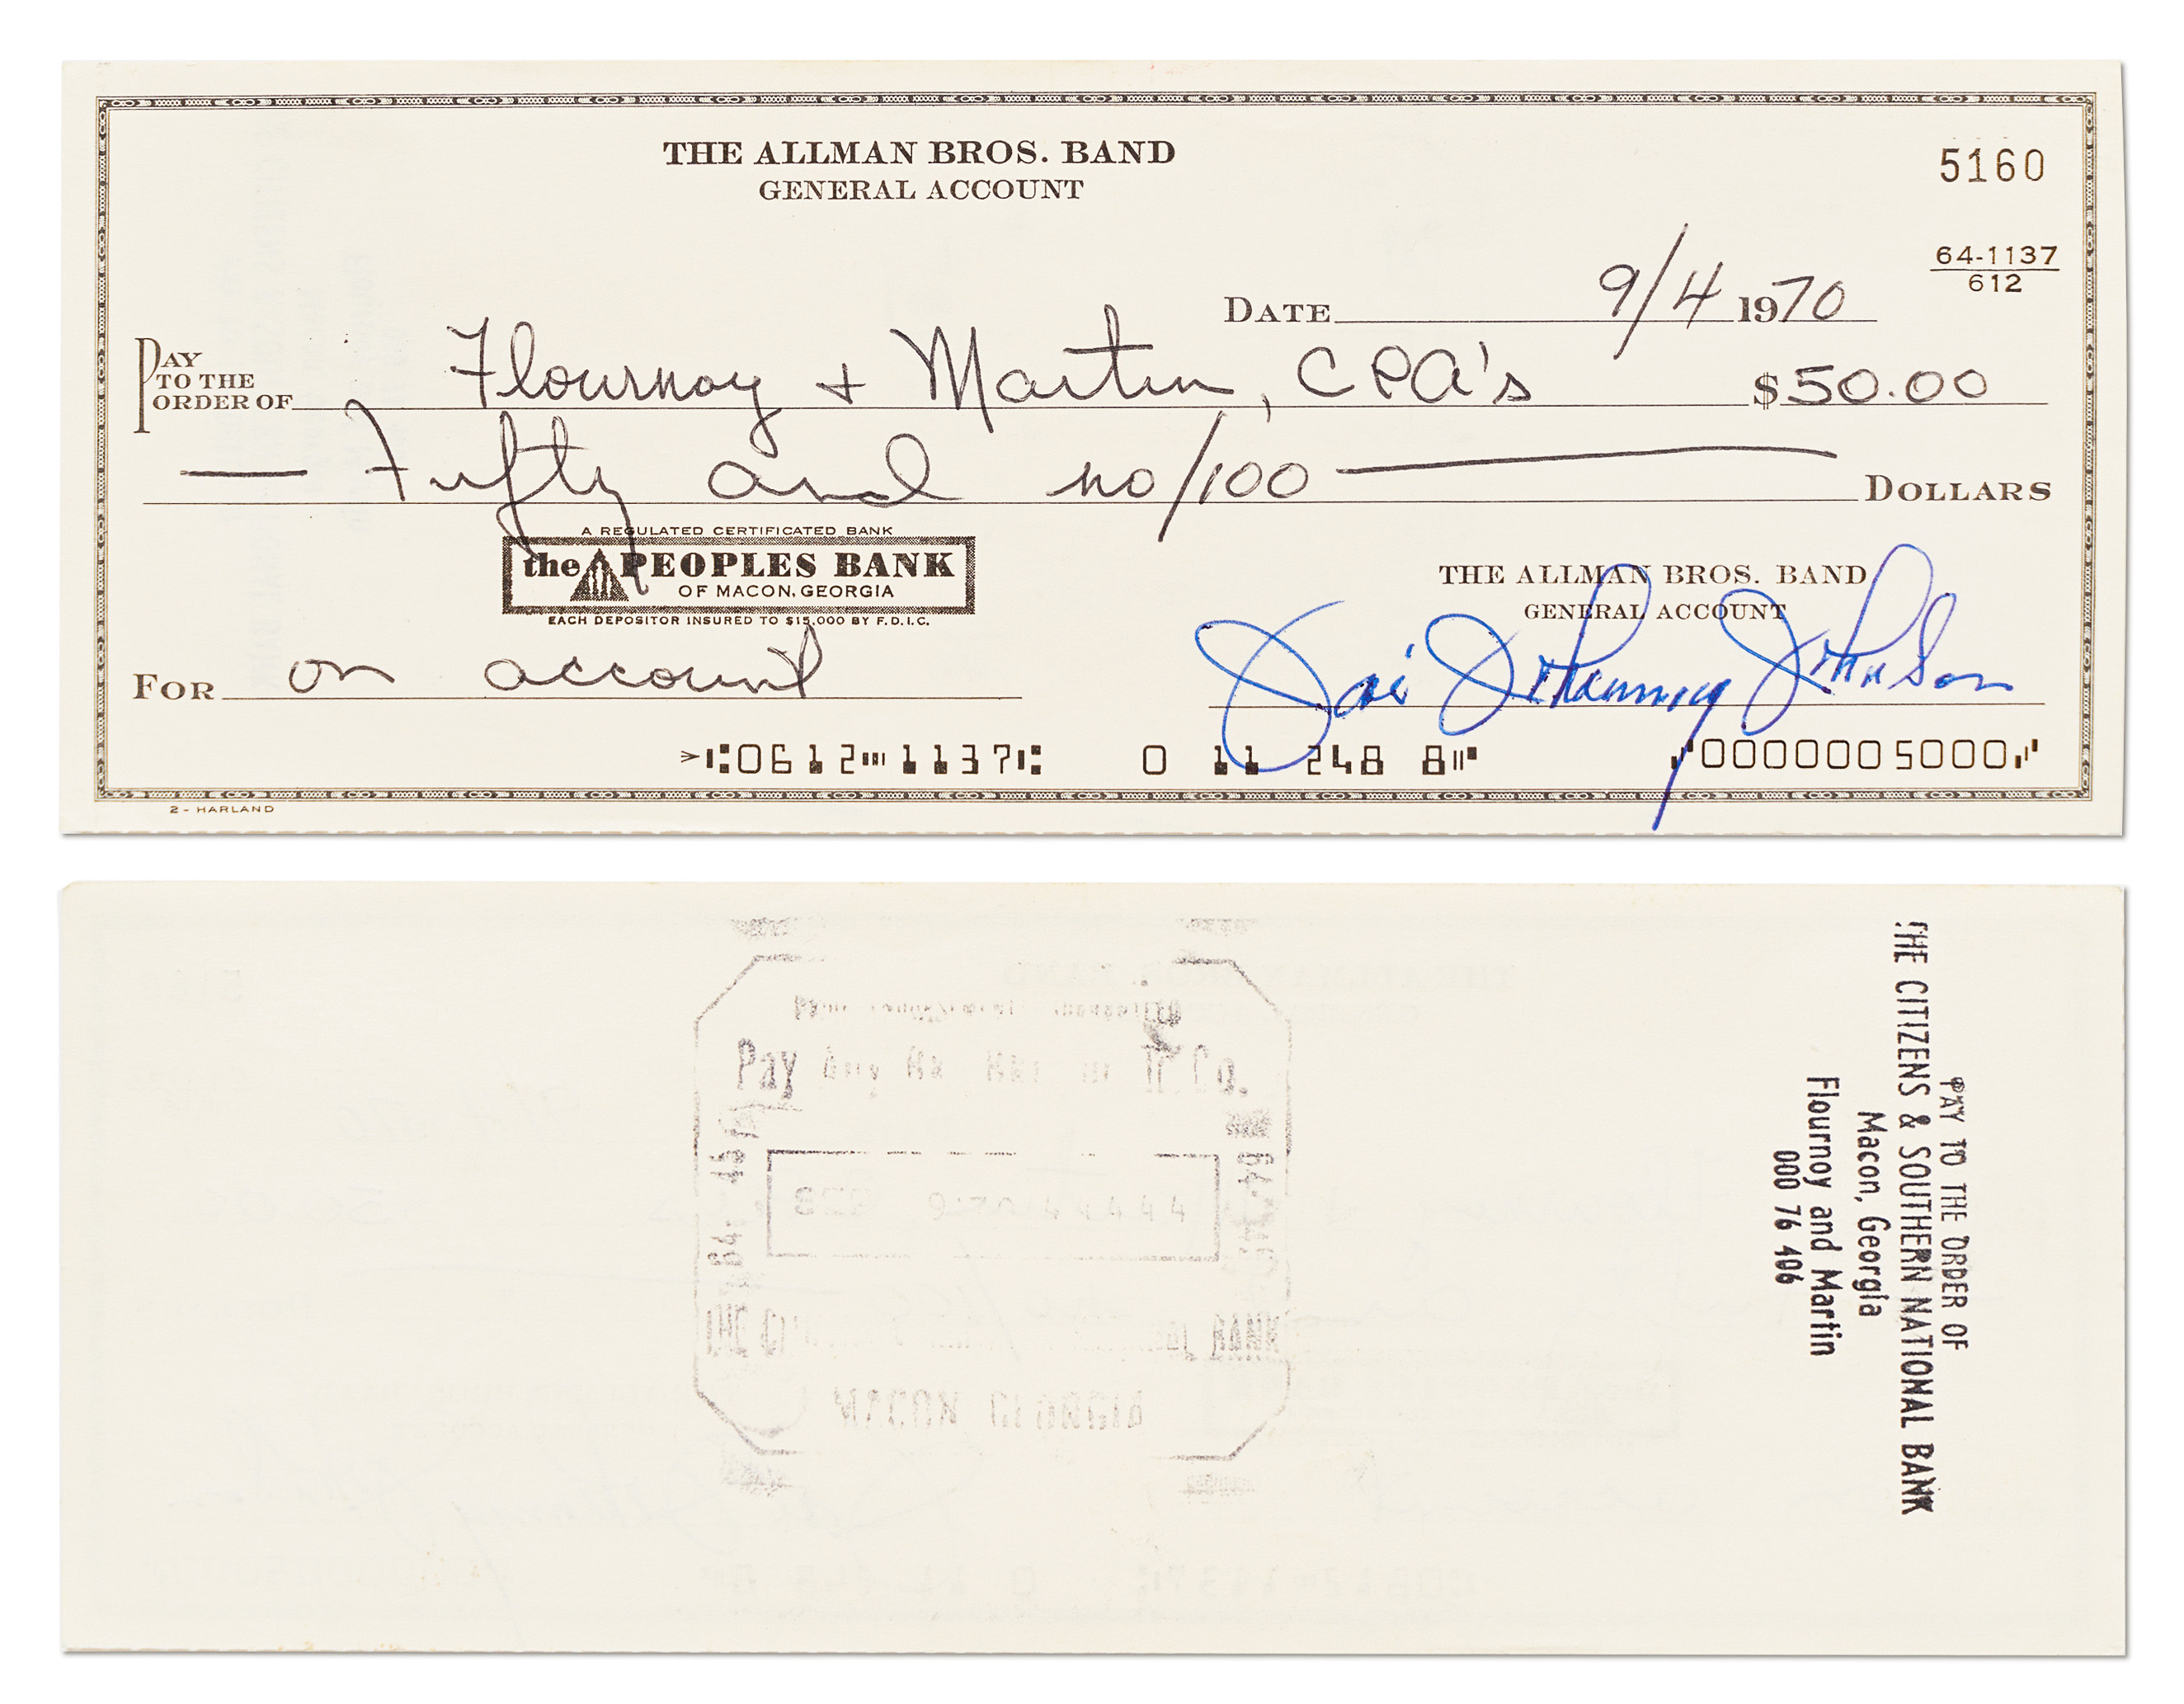 THE ALLMAN BROS. BAND
GENERAL ACCOUNT
5160
64-1137
612
DATE 9/4 1970
PAY TO THE ORDER OF Flournoy + Martin, CPA's $50.00
— Fifty and no/100 — DOLLARS
A REGULATED CERTIFICATED BANK
the PEOPLES BANK
OF MACON, GEORGIA
EACH DEPOSITOR INSURED TO $15,000 BY F.D.I.C.
THE ALLMAN BROS. BAND
GENERAL ACCOUNT
FOR on account
Jai Johanny Johnson
0612 1137 0 11 248 8 0000005000
2 - HARLAND
Pay Any Bk T. Co.
SEP 9 70 44444
BANK
MACON GEORGIA
PAY TO THE ORDER OF
THE CITIZENS & SOUTHERN NATIONAL BANK
Macon, Georgia
Flournoy and Martin
000 76 406